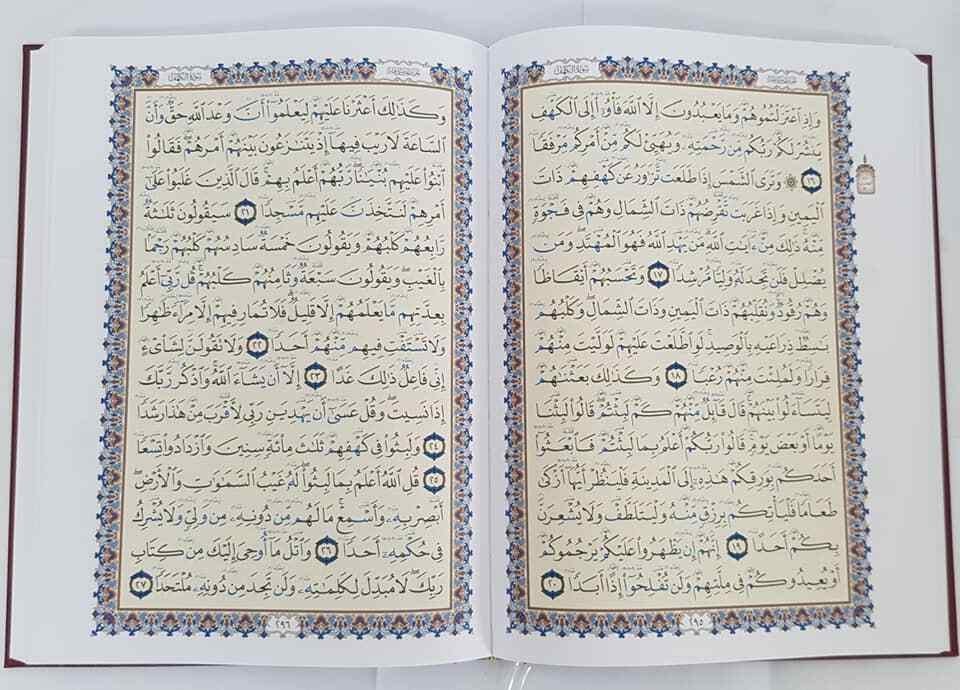 سورة الكهف
وَإِذِ ٱعۡتَزَلۡتُمُوهُمۡ وَمَا يَعۡبُدُونَ إِلَّا ٱللَّهَ فَأۡوُۥٓاْ إِلَى ٱلۡكَهۡفِ
يَنشُرۡ لَكُمۡ رَبُّكُم مِّن رَّحۡمَتِهِۦ وَيُهَيِّئۡ لَكُم مِّنۡ أَمۡرِكُم مِّرۡفَقٗا
١٦ ۞ وَتَرَى ٱلشَّمۡسَ إِذَا طَلَعَت تَّزَٰوَرُ عَن كَهۡفِهِمۡ ذَاتَ
ٱلۡيَمِينِ وَإِذَا غَرَبَت تَّقۡرِضُهُمۡ ذَاتَ ٱلشِّمَالِ وَهُمۡ فِي فَجۡوَةٖ
مِّنۡهُۚ ذَٰلِكَ مِنۡ ءَايَٰتِ ٱللَّهِۗ مَن يَهۡدِ ٱللَّهُ فَهُوَ ٱلۡمُهۡتَدِۖ وَمَن
يُضۡلِلۡ فَلَن تَجِدَ لَهُۥ وَلِيّٗا مُّرۡشِدٗا ١٧ وَتَحۡسَبُهُمۡ أَيۡقَاظٗا
وَهُمۡ رُقُودٞۚ وَنُقَلِّبُهُمۡ ذَاتَ ٱلۡيَمِينِ وَذَاتَ ٱلشِّمَالِۖ وَكَلۡبُهُم
بَٰسِطٞ ذِرَاعَيۡهِ بِٱلۡوَصِيدِۚ لَوِ ٱطَّلَعۡتَ عَلَيۡهِمۡ لَوَلَّيۡتَ مِنۡهُمۡ
فِرَارٗا وَلَمُلِئۡتَ مِنۡهُمۡ رُعۡبٗا ١٨ وَكَذَٰلِكَ بَعَثۡنَٰهُمۡ
لِيَتَسَآءَلُواْ بَيۡنَهُمۡۚ قَالَ قَآئِلٞ مِّنۡهُمۡ كَمۡ لَبِثۡتُمۡۖ قَالُواْ لَبِثۡنَا
يَوۡمًا أَوۡ بَعۡضَ يَوۡمٖۚ قَالُواْ رَبُّكُمۡ أَعۡلَمُ بِمَا لَبِثۡتُمۡ فَٱبۡعَثُوٓاْ
أَحَدَكُم بِوَرِقِكُمۡ هَٰذِهِۦٓ إِلَى ٱلۡمَدِينَةِ فَلۡيَنظُرۡ أَيُّهَآ أَزۡكَىٰ
طَعَامٗا فَلۡيَأۡتِكُم بِرِزۡقٖ مِّنۡهُ وَلۡيَتَلَطَّفۡ وَلَا يُشۡعِرَنَّ
بِكُمۡ أَحَدًا ١٩ إِنَّهُمۡ إِن يَظۡهَرُواْ عَلَيۡكُمۡ يَرۡجُمُوكُمۡ
أَوۡ يُعِيدُوكُمۡ فِي مِلَّتِهِمۡ وَلَن تُفۡلِحُوٓاْ إِذًا أَبَدٗا ٢٠
٢٩٥
سورة الكهف
وَكَذَٰلِكَ أَعۡثَرۡنَا عَلَيۡهِمۡ لِيَعۡلَمُوٓاْ أَنَّ وَعۡدَ ٱللَّهِ حَقّٞ وَأَنَّ
ٱلسَّاعَةَ لَا رَيۡبَ فِيهَآ إِذۡ يَتَنَٰزَعُونَ بَيۡنَهُمۡ أَمۡرَهُمۡۖ فَقَالُواْ
ٱبۡنُواْ عَلَيۡهِم بُنۡيَٰنٗاۖ رَّبُّهُمۡ أَعۡلَمُ بِهِمۡۚ قَالَ ٱلَّذِينَ غَلَبُواْ عَلَىٰٓ
أَمۡرِهِمۡ لَنَتَّخِذَنَّ عَلَيۡهِم مَّسۡجِدٗا ٢١ سَيَقُولُونَ ثَلَٰثَةٞ
رَّابِعُهُمۡ كَلۡبُهُمۡ وَيَقُولُونَ خَمۡسَةٞ سَادِسُهُمۡ كَلۡبُهُمۡ رَجۡمَۢا
بِٱلۡغَيۡبِۖ وَيَقُولُونَ سَبۡعَةٞ وَثَامِنُهُمۡ كَلۡبُهُمۡۚ قُل رَّبِّيٓ أَعۡلَمُ
بِعِدَّتِهِم مَّا يَعۡلَمُهُمۡ إِلَّا قَلِيلٞۗ فَلَا تُمَارِ فِيهِمۡ إِلَّا مِرَآءٗ ظَٰهِرٗا
وَلَا تَسۡتَفۡتِ فِيهِم مِّنۡهُمۡ أَحَدٗا ٢٢ وَلَا تَقُولَنَّ لِشَاْيۡءٍ
إِنِّي فَاعِلٞ ذَٰلِكَ غَدًا ٢٣ إِلَّآ أَن يَشَآءَ ٱللَّهُۚ وَٱذۡكُر رَّبَّكَ
إِذَا نَسِيتَۖ وَقُلۡ عَسَىٰٓ أَن يَهۡدِيَنِ رَبِّي لِأَقۡرَبَ مِنۡ هَٰذَا رَشَدٗا
٢٤ وَلَبِثُواْ فِي كَهۡفِهِمۡ ثَلَٰثَ مِاْئَةٖ سِنِينَ وَٱزۡدَادُواْ تِسۡعٗا
٢٥ قُلِ ٱللَّهُ أَعۡلَمُ بِمَا لَبِثُواْۖ لَهُۥ غَيۡبُ ٱلسَّمَٰوَٰتِ وَٱلۡأَرۡضِۖ
أَبۡصِرۡ بِهِۦ وَأَسۡمِعۡۚ مَا لَهُم مِّن دُونِهِۦ مِن وَلِيّٖ وَلَا يُشۡرِكُ
فِي حُكۡمِهِۦٓ أَحَدٗا ٢٦ وَٱتۡلُ مَآ أُوحِيَ إِلَيۡكَ مِن كِتَابِ
رَبِّكَۖ لَا مُبَدِّلَ لِكَلِمَٰتِهِۦ وَلَن تَجِدَ مِن دُونِهِۦ مُلۡتَحَدٗا ٢٧
٢٩٦